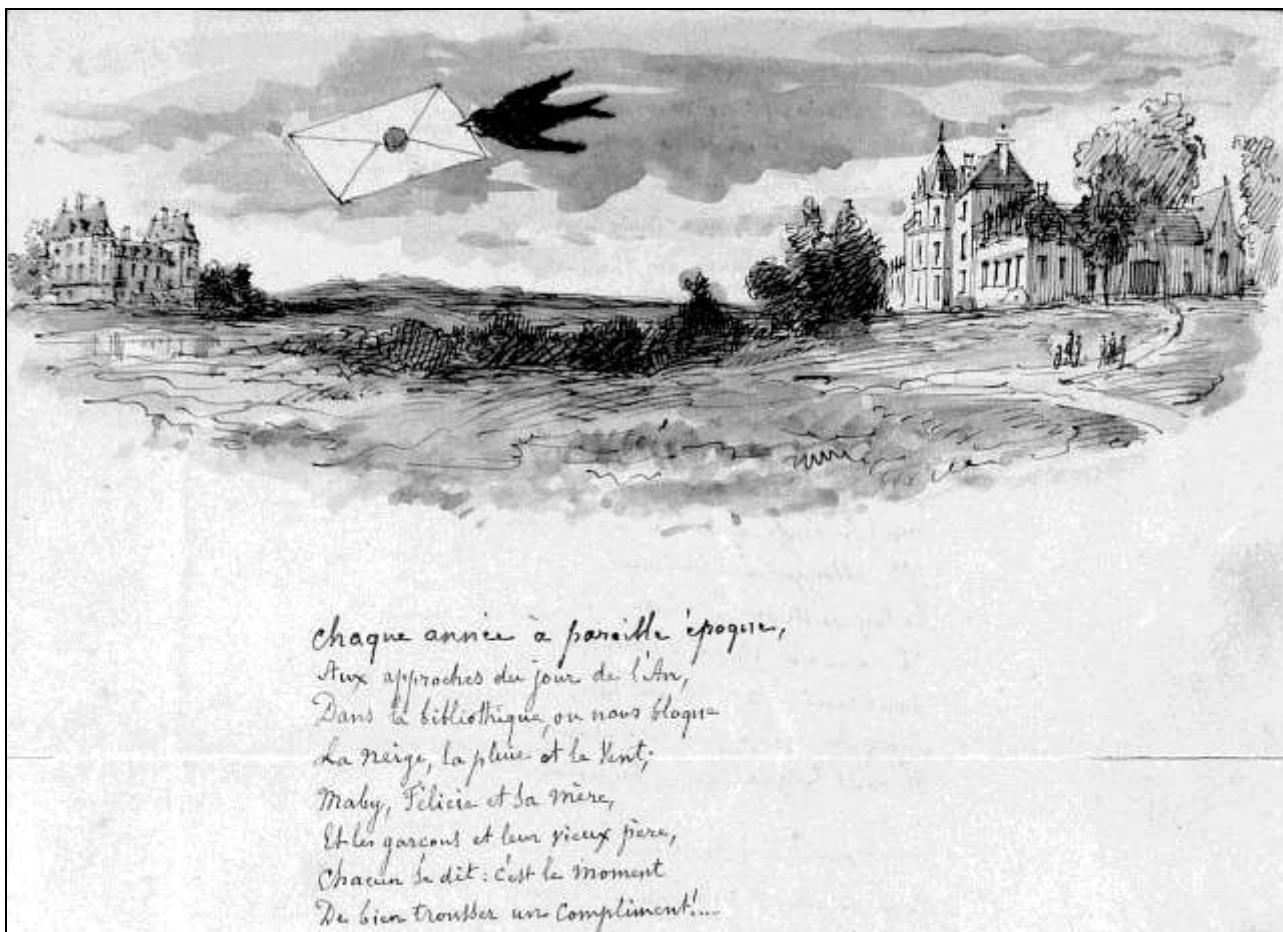 Chaque année à pareille époque,
Aux approches du jour de l'An,
Dans la bibliothèque, ou nous bloque
La neige, la pluie et le Vent;
Maby, Félicie et Sa Mère,
Et les garçons et leur vieux père,
Chacun se dit: c'est le moment
De bien trousser un Compliment!...